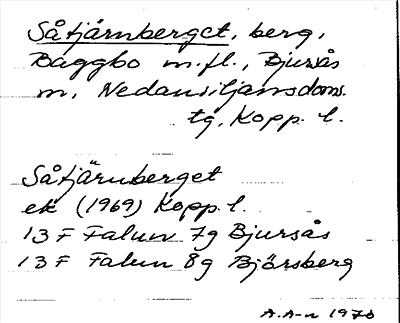 Såtjärnberget, berg,
Baggbo m.fl., Bjursås
sn, Nedansiljansdoms.
tg, Kopp. l.
Såtjärnberget
ek (1969) Kopp. l.
13 F Falun 7g Bjursås
13 F Falun 8g Björsberg
A.A-n 1970